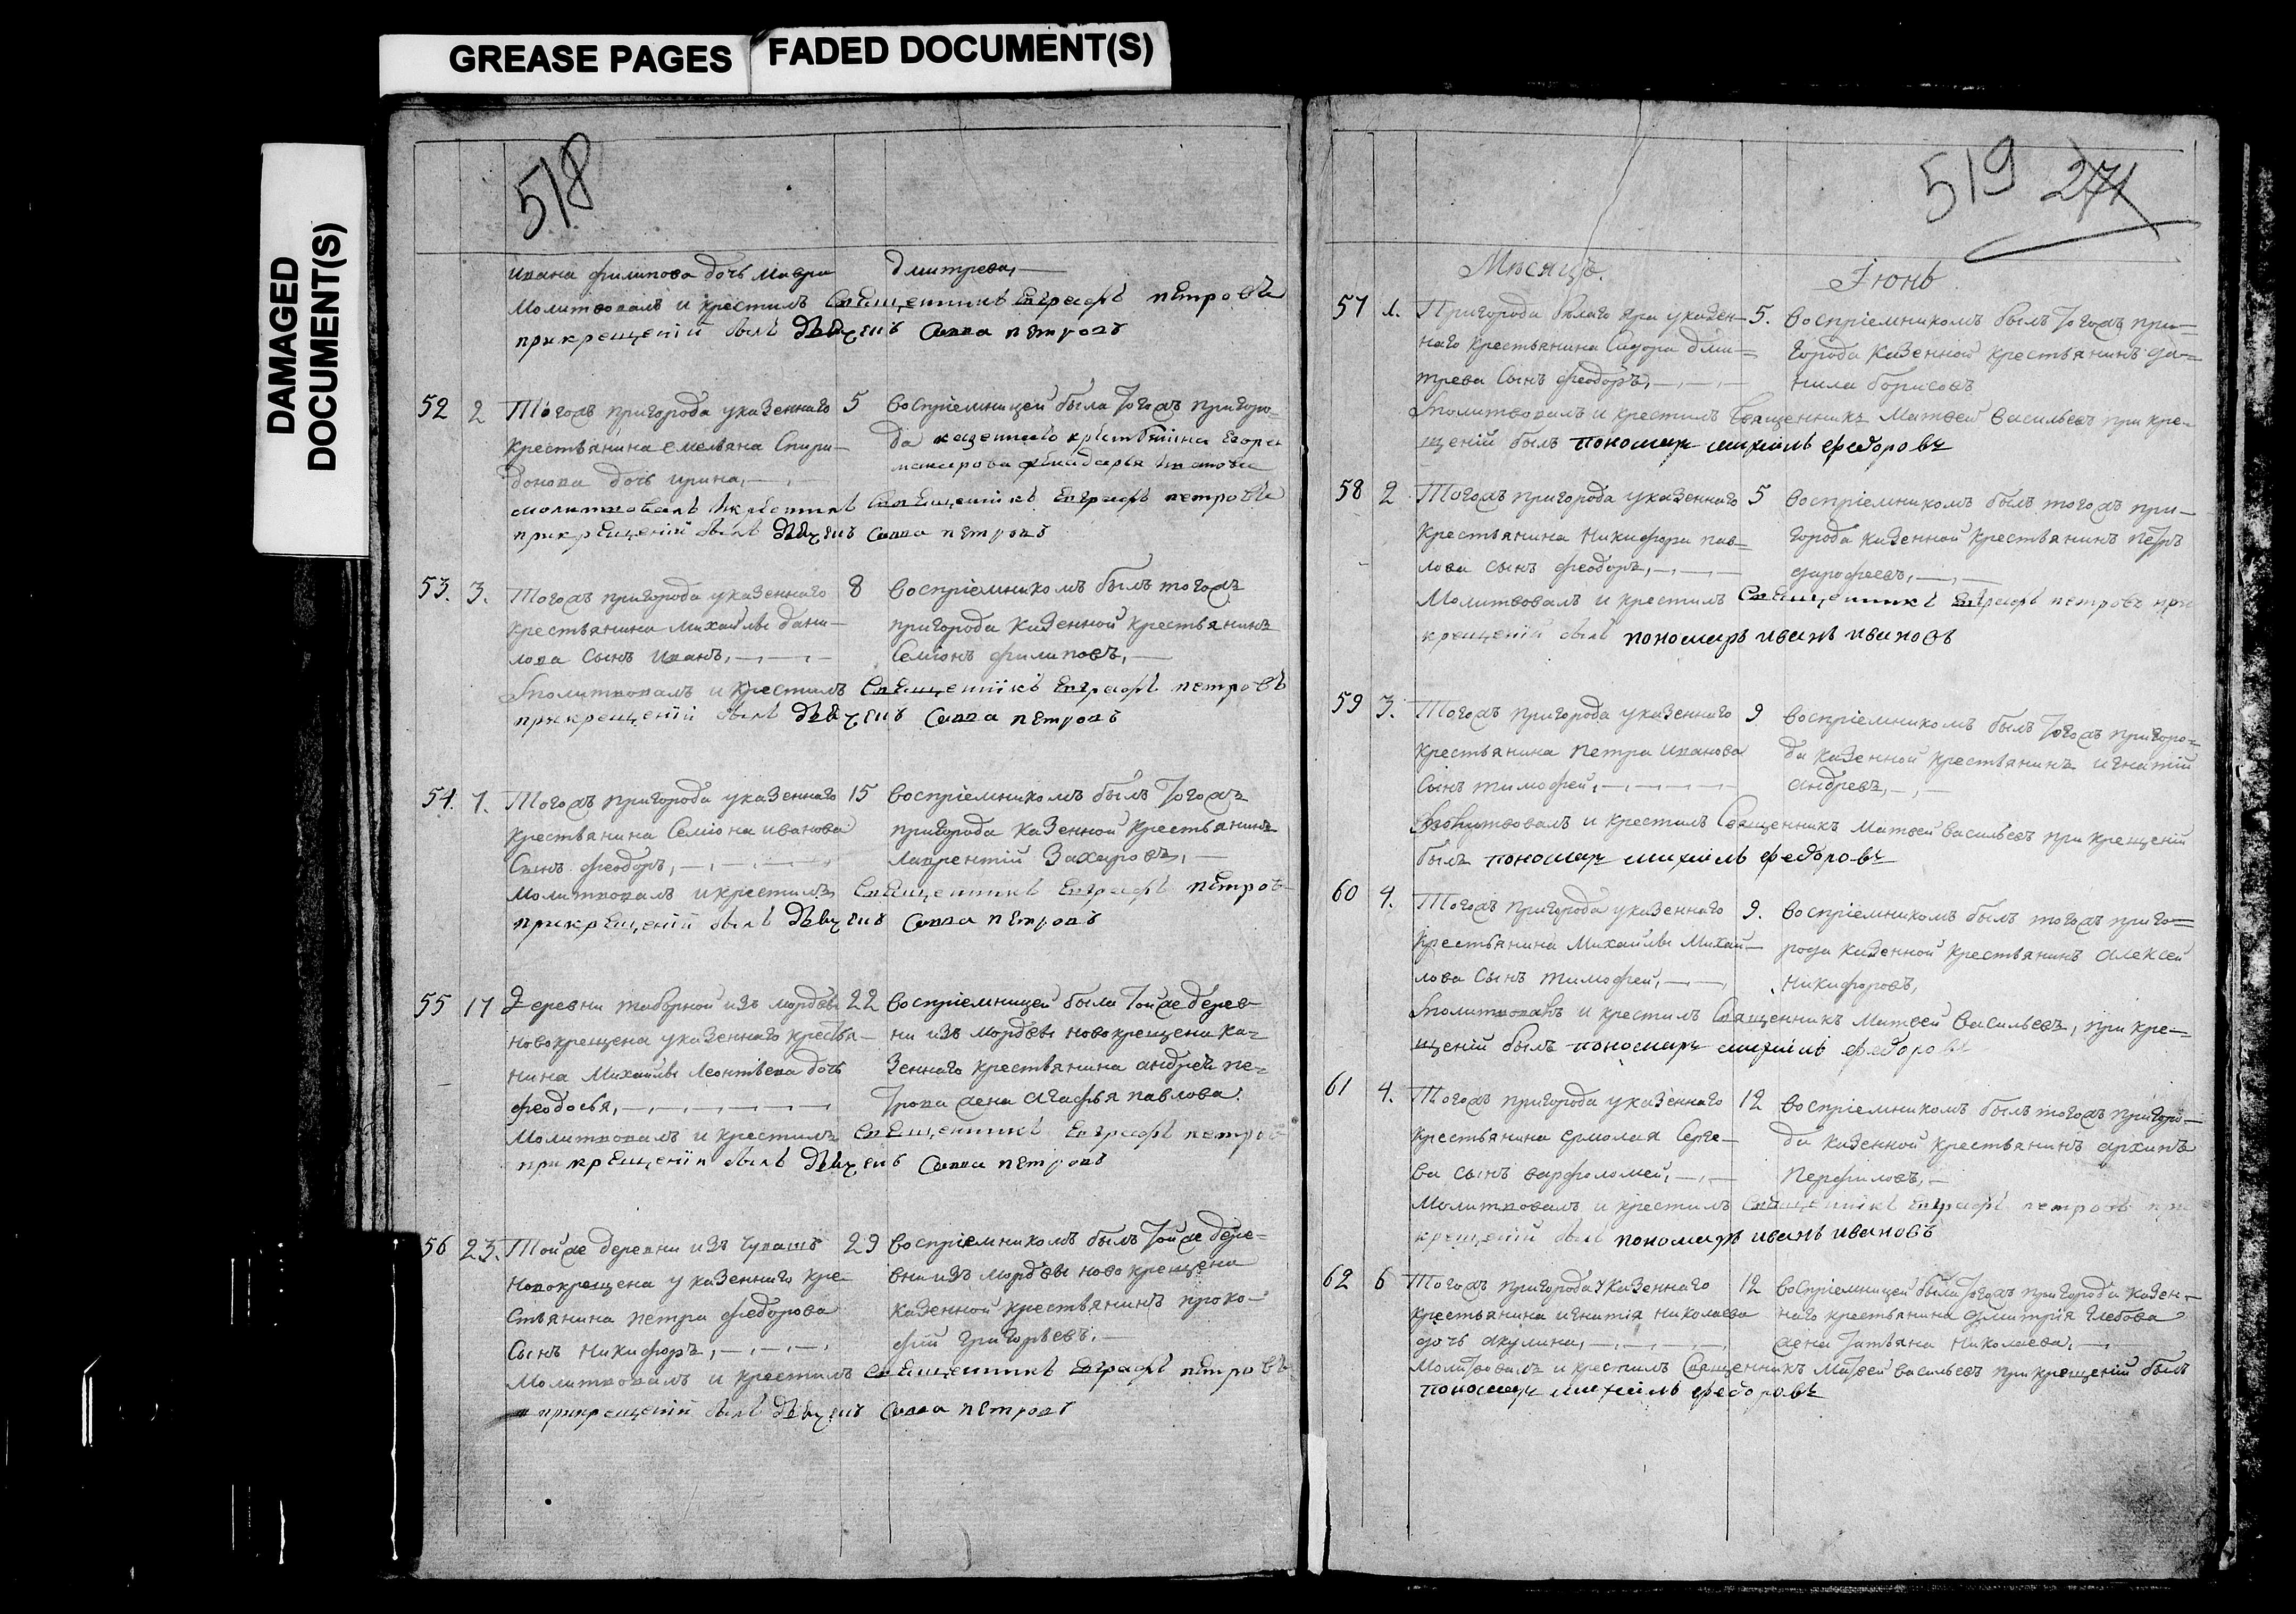 GREASE PAGES
FADED DOCUMENT(S)
DAMAGED
DOCUMENT(S)
518
ивана филипова дочь мавра
дмитрева,
Молитвовалъ и крестилъ Священникъ Евграфъ петровъ
прикрещенїи былъ Савва петровъ
52 2 Тогожъ пригорода указеннаго
крестьянина емельяна Спири-
донова дочь ирина,
5 воспрїемницей была Тогожъ пригоро-
да казеннаго крестьянина Егора
молитвовалъ икрестилъ Священникъ Евграфъ петровъ
прикрещенїи былъ Савва петровъ
53. 3. Тогожъ пригорода указеннаго
крестьянина михайлы дани-
лова Сынъ иванъ,
8 воспрїемникомъ былъ тогожъ
пригорода казенной крестьянинъ
Семїонъ филиповъ,
Молитвовалъ и крестилъ Священникъ Евграфъ петровъ
прикрещенїи былъ Савва петровъ
54. 7. Тогожъ пригорода указеннаго
крестьянина Семїона иванова
Сынъ феодоръ,
15 воспрїемникомъ былъ Тогожъ
пригорода казенной крестьянинъ
Лаврентїй Захаровъ,
Молитвовалъ икрестилъ Священникъ Евграфъ петровъ
прикрещенїи былъ Савва петровъ
55 17 Деревни таборной изъ мордвы
новокрещена указеннаго крестья-
нина Михайлы Леонтьева дочь
феодосья,
22 воспрїемницей была Тойже дерев-
ни изъ мордвы новокрещена ка-
зеннаго крестьянина андрея пе-
трова жена агафья павлова.
Молитвовалъ и крестилъ Священникъ Евграфъ петровъ
прикрещенїи былъ Савва петровъ
56 23. Тойже деревни изъ чувашъ
новокрещена указеннаго кре-
стьянина петра федорова
Сынъ никифоръ,
29 воспрїемникомъ былъ Тойже дере-
вни изъ мордвы новокрещена
казенной крестьянинъ проко-
фїй григорьевъ.
Молитвовалъ и крестилъ Священникъ Евграфъ петровъ
прикрещенїи былъ Савва петровъ
519 271
Месяцъ.
Їюнь
57 1. Пригорода белаго яра указен-
наго крестьянина Сидора дми-
трева Сынъ феодоръ,
5. воспрїемникомъ былъ Тогожъ при-
города казенной крестьянинъ да-
нила борисовъ
Молитвовалъ и крестилъ Священникъ Матвей васильевъ при кре-
щенїи былъ пономарь михаилъ федоровъ
58 2 Тогожъ пригорода указеннаго
крестьянина никифора пав-
лова сынъ феодоръ,
5 воспрїемникомъ былъ тогожъ при-
города казенной крестьянинъ петръ
дарофеевъ,
Молитвовалъ и крестилъ Священникъ Евграфъ петровъ при
крещенїи былъ пономарь иванъ ивановъ
59 3. Тогожъ пригорода указеннаго
крестьянина петра иванова
Сынъ тимофей,
9 воспрїемникомъ былъ Тогожъ пригоро-
да казенной крестьянинъ игнатїй
андревъ,
Молитвовалъ и крестилъ Священникъ Матвей васильевъ при крещенїи
былъ пономарь михаилъ федоровъ
60 4. Тогожъ пригорода указеннаго
крестьянина Михайлы Михай-
лова Сынъ тимофей,
9. воспрїемникомъ былъ тогожъ приго-
рода казенной крестьянинъ алексей
никифоровъ,
Молитвовалъ и крестилъ Священникъ Матвей васильевъ, при кре-
щенїи былъ пономарь михаилъ федоровъ
61 4. Тогожъ пригорода указеннаго
крестьянина ермолая Серге-
ва сынъ варфоломей,
12 воспрїемникомъ былъ тогожъ пригоро-
да казенной крестьянинъ архипъ
Перфиловъ,
Молитвовалъ и крестилъ Священникъ Евграфъ петровъ при
крещенїи былъ пономарь иванъ ивановъ
62 6 Тогожъ пригорода указеннаго
крестьянина игнатїя николаева
дочь акулина,
12 воспрїемницей была Тогожъ пригорода казен-
наго крестьянина дмитрїя глебова
жена Татьяна николаева,
Молитвовалъ и крестилъ Священникъ Матвей васильевъ при крещенїи былъ
пономарь михаилъ федоровъ